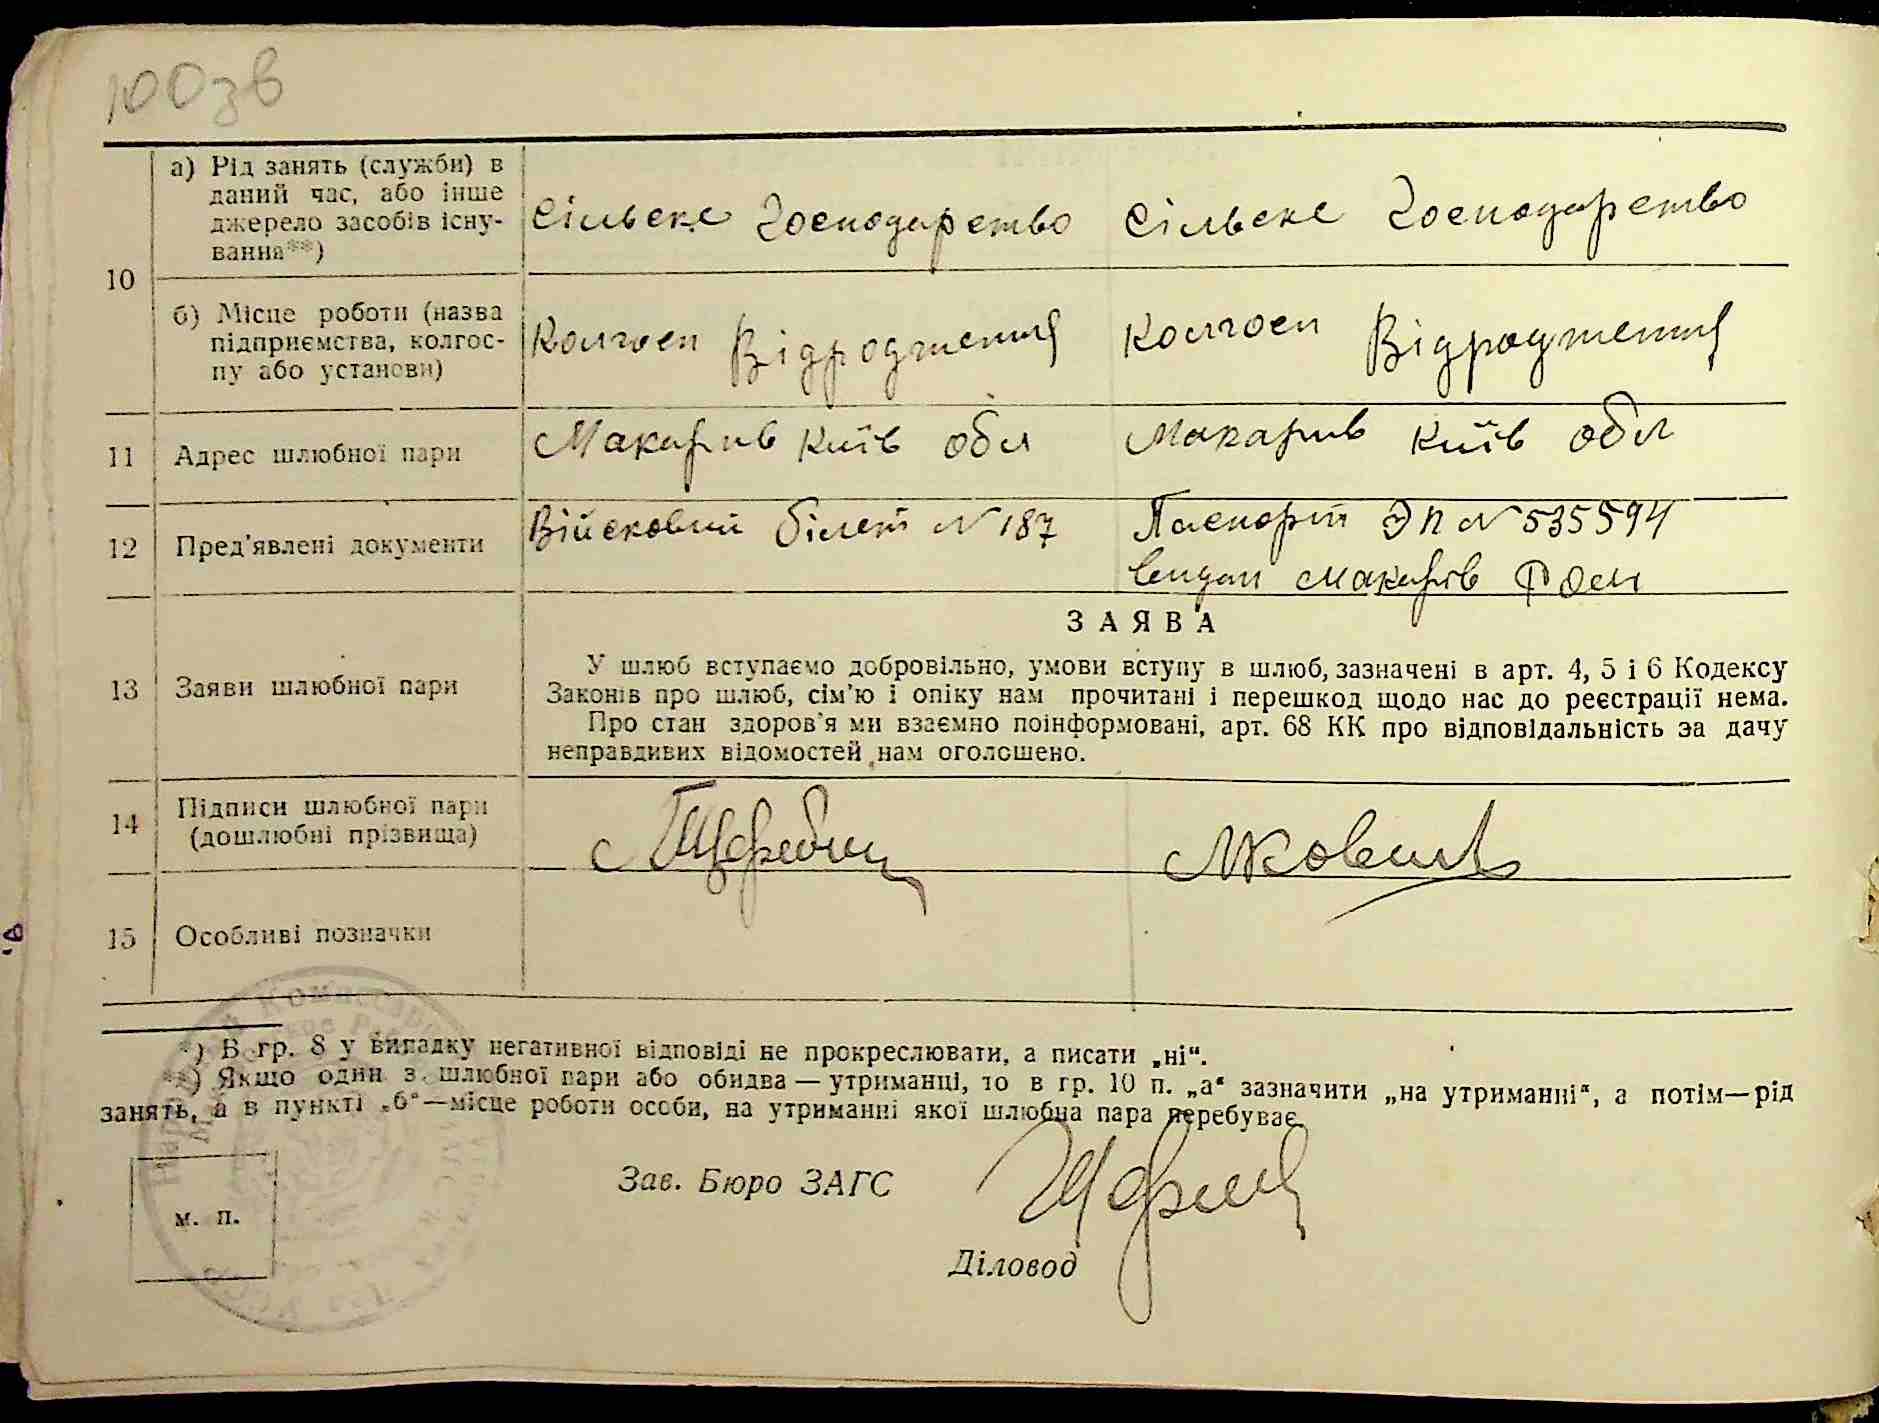 100зв
а) Рід занять (служби) в
даний час, або інше
джерело засобів існу-
вання**)
Сільске Господарство
Сільске Господарство
10
б) Місце роботи (назва
підприємства, колгос-
пу або установи)
Колгосп Відродження
Колгосп Відродження
11
Адрес шлюбної пари
Макарив Київ обл
Макарив Київ обл
12
Пред'явлені документи
Військовий білет № 187
Паспорт ЭП № 535594
видан Макарів РОМ
ЗАЯВА
13
Заяви шлюбної пари
У шлюб вступаємо добровільно, умови вступу в шлюб, зазначені в арт. 4, 5 і 6 Кодексу
Законів про шлюб, сім'ю і опіку нам прочитані і перешкод щодо нас до реєстрації нема.
Про стан здоров'я ми взаємно поінформовані, арт. 68 КК про відповідальність за дачу
неправдивих відомостей нам оголошено.
14
Підписи шлюбної пари
(дошлюбні прізвища)
15
Особливі позначки
*) В гр. 8 у випадку негативної відповіді не прокреслювати, а писати „ні“.
**) Якщо один з шлюбної пари або обидва — утриманці, то в гр. 10 п. „а“ зазначити „на утриманні“, а потім—рід
занять, а в пункті „б“—місце роботи особи, на утриманні якої шлюбна пара перебуває.
Зав. Бюро ЗАГС
м. п.
Діловод